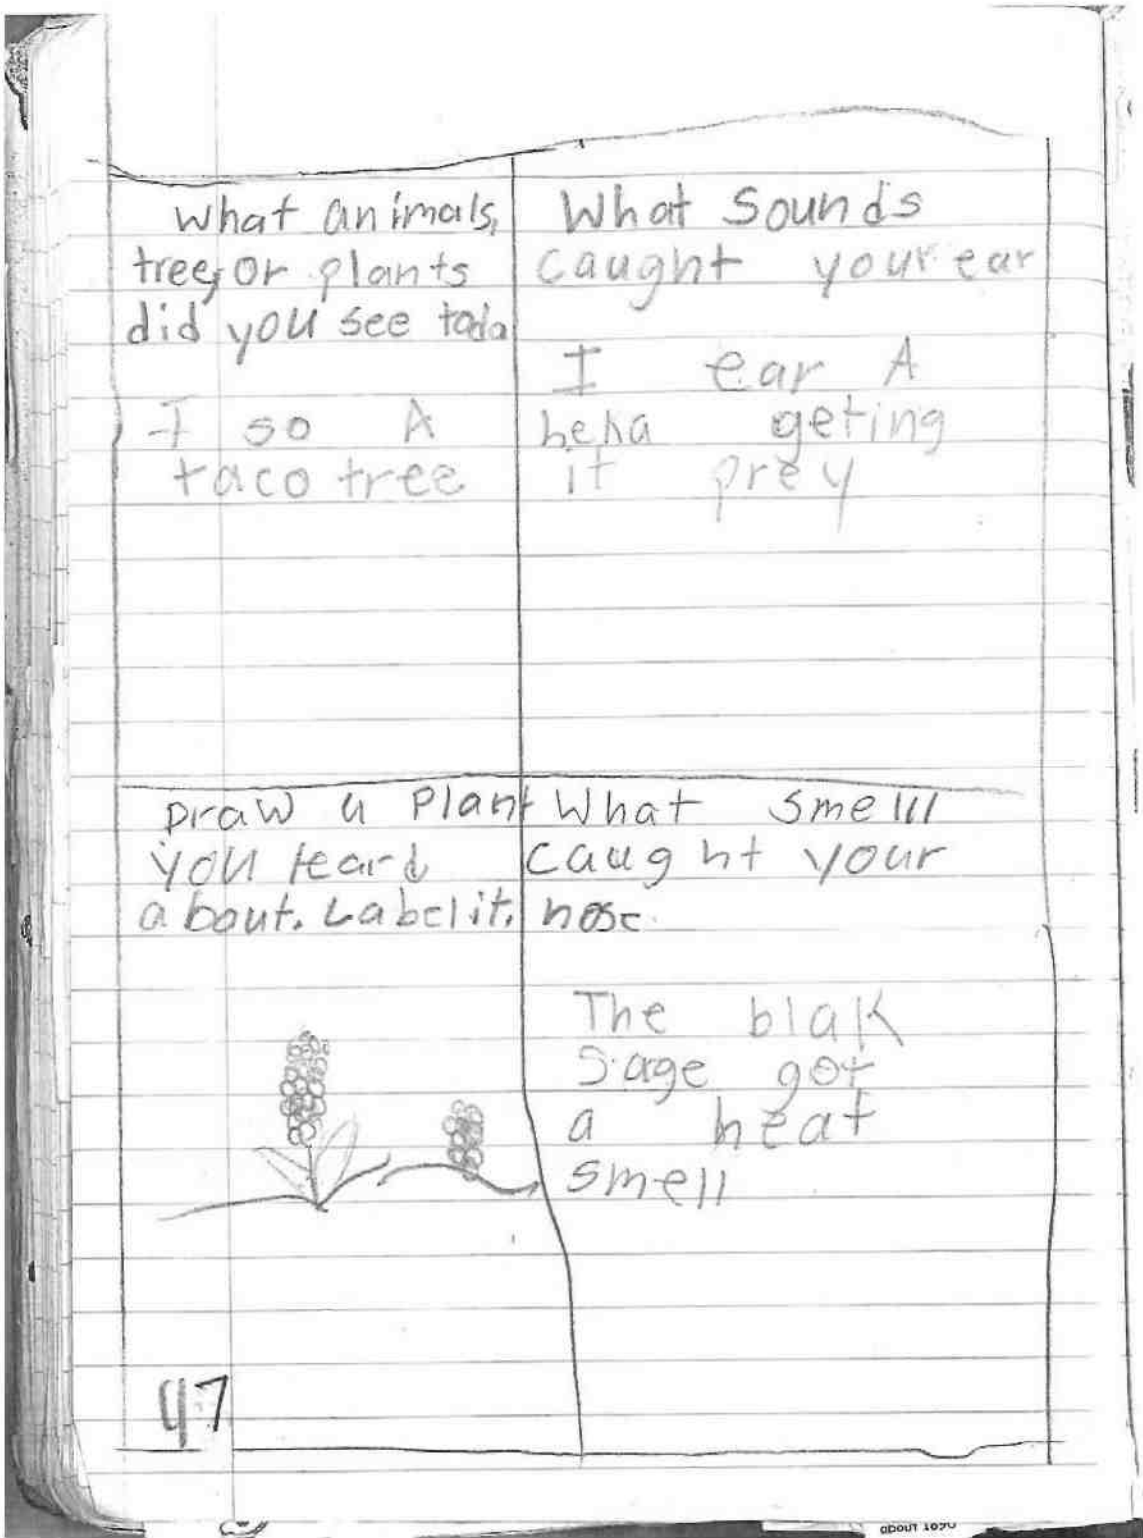 What animals,
tree, or plants
did you see toda
I so A
taco tree
What Sounds
caught your ear
I ear A
heha geting
it prey
Draw a Plant
you leard
about. Label it.
What smelll
caught your
nose.
The blak
sage got
a neat
smell
47
about 1890